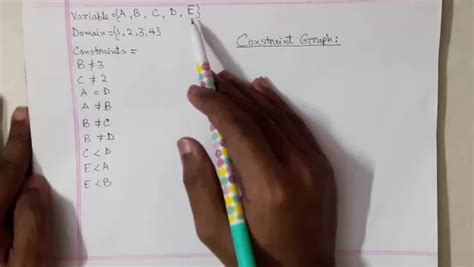 Variable = {A, B, C, D, E}
Domain = {1, 2, 3, 4}
Constraint Graph:
Constraints =
B ≠ 3
C ≠ 2
A = D
A ≠ B
B ≠ C
B ≠ D
C < D
E < A
E < B